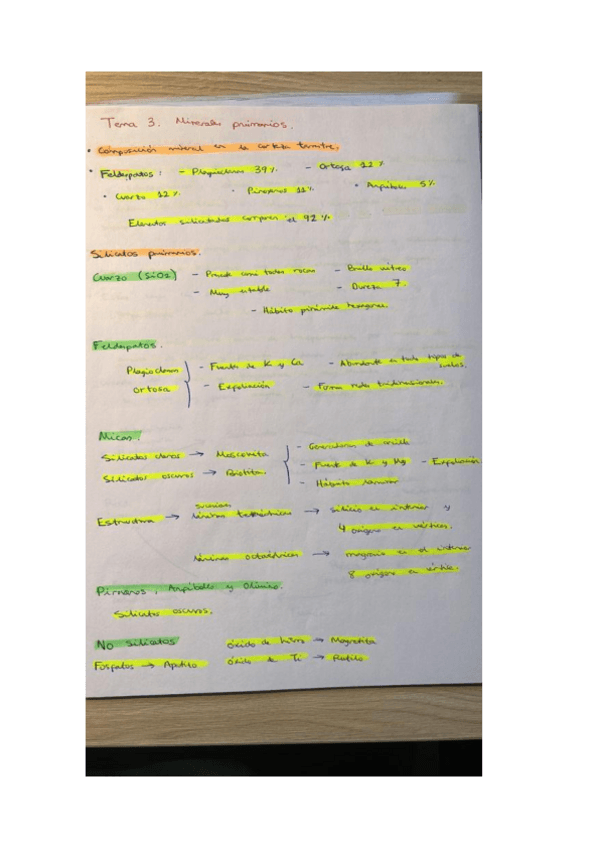 Tema 3. Minerales primarios.
• Composición mineral en la corteza terrestre.
• Feldespatos: - Plagioclasas 39% - Ortosa 12%
• Cuarzo 12% • Piroxenos 11% • Anfíboles 5%
silicatados componen el 92%
Silicatos primarios.
Cuarzo (SiO2) - Presente casi todas rocas - Brillo vítreo
- Muy estable - Dureza 7.
- Hábito pirámide hexagonal
Feldespatos.
Plagioclasas - Fuente de K y Ca - Abundante en todo tipos de suelos.
Ortosa - Exfoliación - Forma redes tridimensionales.
Micas.
Silicatos claros → Moscovita - Generadoras de arcilla
Silicatos oscuros → Biotita. - Fuente de K y Mg - Exfoliación
- Hábito laminar
Estructura → láminas tetraédricas → silicio en interior y
4 oxígenos en vértices.
láminas octaédricas → magnesio en el interior
8 oxígenos en
Piroxenos, Anfíboles y Olivino.
Silicatos oscuros.
No silicatos óxido de hierro → Magnetita
Fosfatos → Apatito óxido de Ti → Rutilo